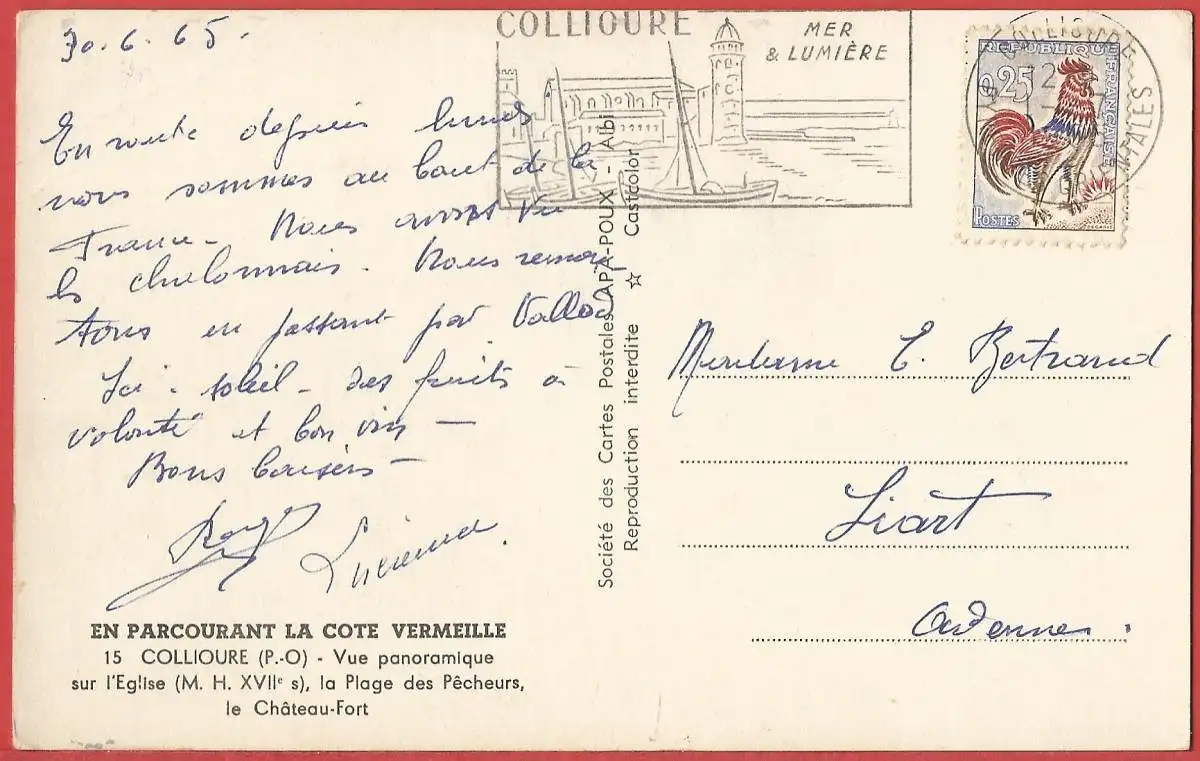 30.6.65.
En route depuis lundi
nous sommes au bout de la
France - Nous avons vu
les chalonnais. Nous remon
tons en passant par
Ici - soleil - des fruits à
volonté et bon vin -
Bons baisers -
Roger
Lucienne.
EN PARCOURANT LA COTE VERMEILLE
15 COLLIOURE (P.-O) - Vue panoramique
sur l'Eglise (M. H. XVIIe s), la Plage des Pêcheurs,
le Château-Fort
Société des Cartes Postales APA-POUX - Albi
Reproduction interdite ☆ Castcolor
COLLIOURE
MER
& LUMIÈRE
COLLIOURE
REPUBLIQUE FRANÇAISE
0,25
POSTES
DECARIS
Madame E. Bertrand
Liart
Ardennes.